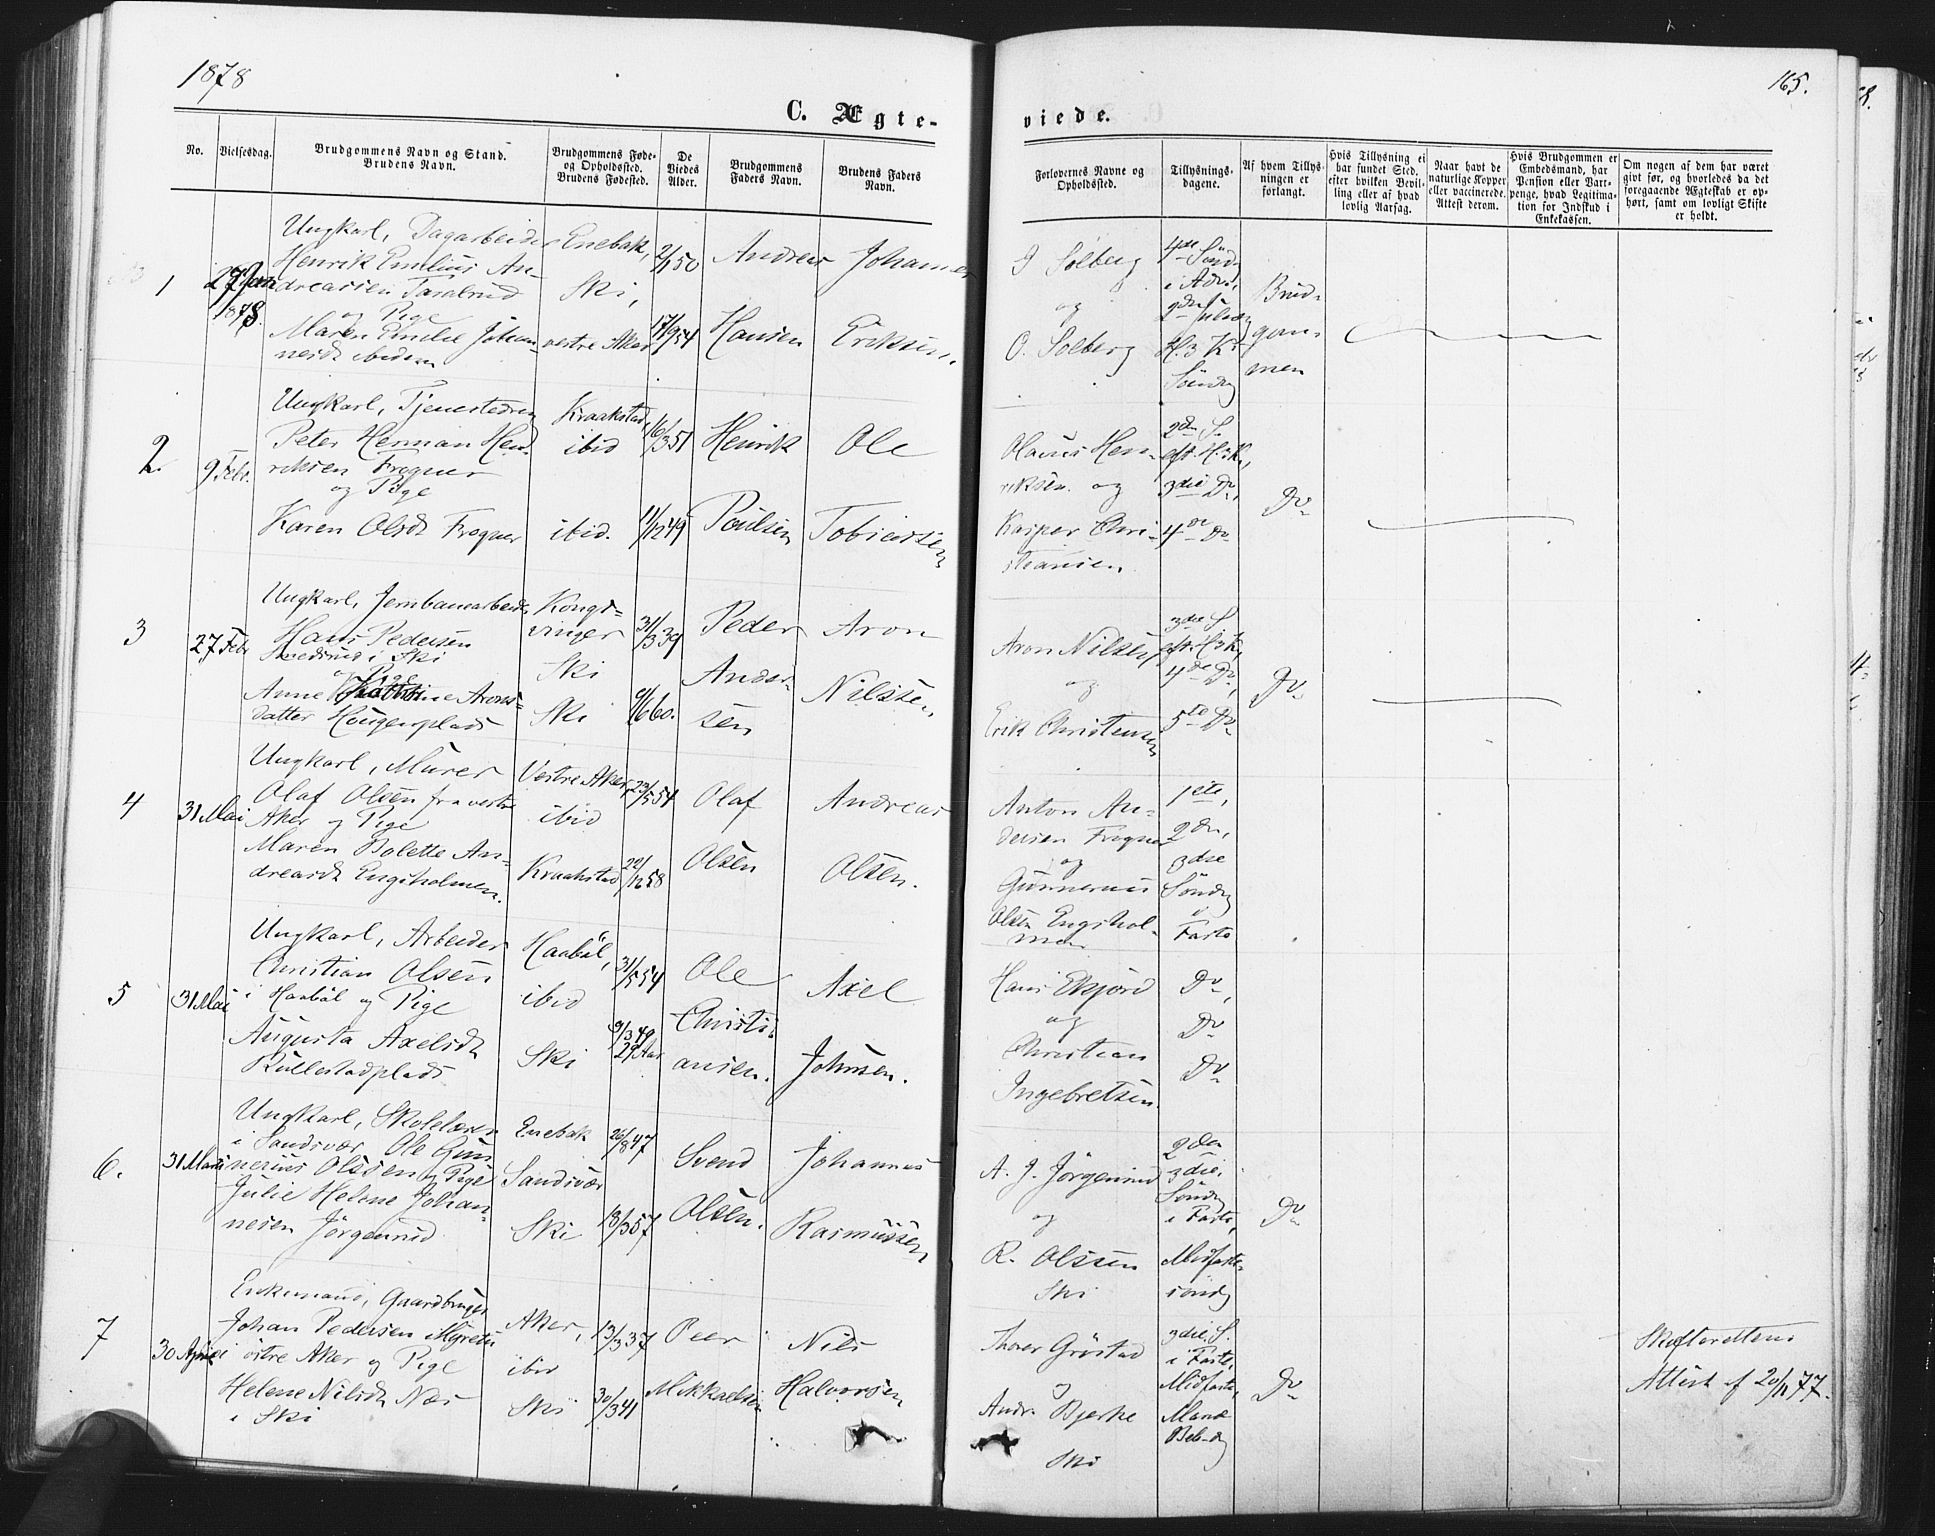 1878
165.
C. Ægte-
viede.
No.
Vielsesdag.
Brudgommens Navn og Stand.
Brudens Navn.
Brudgommens Føde-
og Opholdssted.
Brudens Fødested.
De
Viedes
Alder.
Brudgommens
Faders Navn.
Brudens Faders
Navn.
Forlovernes Navne og
Opholdssted.
Tillysnings-
dagene.
Af hvem Tillys-
ningen er
forlangt.
Hvis Tillysning ei
har fundet Sted,
efter hvilken Bevil-
ling eller af hvad
lovlig Aarsag.
Naar havt de
naturlige Kopper
eller vaccinerede.
Attest derom.
Hvis Brudgommen er
Embedsmand, har
Pension eller Vart-
penge, hvad Legitima-
tion for Indskud i
Enkekassen.
Om nogen af dem har været
givt før, og hvorledes da det
foregaaende Ægteskab er op-
hørt, samt om lovligt Skifte
er holdt.
1
27 Jan
1878.
Ungkarl, Dagarbeider
Henrik Emilius An-
dreassen Taralrud
og Pige
Maren Emilie Johan-
nesdt ibidem
Enebak,
Ski,
vestre Aker
2/1 50
17/9 54
Andreas
Hansen
Johannes
Eriksen.
J Solberg
og
O. Solberg
4de Sønd
i Adv.,
H. 3 K
Søndg
Brud-
gom-
men
2.
9 Febr.
Ungkarl, Tjenestedreng
Peter Herman Hen-
riksen Frogner
og Pige
Karen Olsdt Frogner
Kraakstad,
ibid
ibid.
16/3 51
11/12 49
Henrik
Poulsen
Ole
Tobiassen
Olaus Hen-
riksen og
Kasper Chri-
stiansen.
2den S.
eft. H. 3 K.,
3die Do,
4de Do
Do
3
27 Febr
Ungkarl, Jernbanearbeider
Hans Pedersen
Smedsrud i Ski
og Pige
Anne Arons-
datter Haugerplads
Kongs-
vinger
Ski
Ski
31/3 39
9/6 60.
Peder
Ander-
sen
Aron
Nilssen,
Aron Nilsen
og
Erik Christensen
3die S
eft. H 3 K,
4de Do,
5te Do
Do
4
31 Mai
Ungkarl, Murer
Olaf Olsen fra vestre
Aker og Pige
Maren Bolette An-
dreasdt Engsholmen.
Vestre Aker,
ibid
Kraakstad
23/5 54
22/12 58
Olaf
Olsen
Andreas
Olsen.
Anton An-
dersen Frogner
og
Gunnerius
Olsen Engshol-
men
1ste,
2den,
3die
Søndg
i
Faste
5
31 Mai
Ungkarl, Arbeider
Christian Olsen
i Haabøl og Pige
Augusta Axelsdt
Kullestadplads
Haabøl,
ibid
Ski
31/5 54
9/3 49
29 Aar
Ole
Christi-
ansen.
Axel
Johnsen.
Hans Ekjord
og
Christian
Ingebretsen.
Do,
Do
Do
6.
31 Mai
Ungkarl, Skolelærer
i Sandsvær Ole Gun-
nerius Olssen og Pige
Julie Helene Johan-
nesen Jørgenrud
Enebak
Sandsvær
Ski
26/8 47
18/3 57
Svend
Olsen.
Johannes
Rasmussen
A. J. Jørgenrud
og
R. Olssen
Ski
2den
3die,
Søndg
i Faste,
Midfaste-
søndg
Do
7
30 April
Enkemand, Gaardbruger
Johan Pedersen
østre Aker og Pige
Helene Nilsdt Næs
i Ski
Aker,
ibid
Ski
13/3 37
30/3 41
Peer
Mikkaelsen
Nils
Halvorsen
Thorer Grøstad
og
Andr. Bjerke
Ski
3die S.
i Faste,
Midfaste,
Mariæ
Beb-dg
Do
Skifterettens
Attest af 20/11 77.